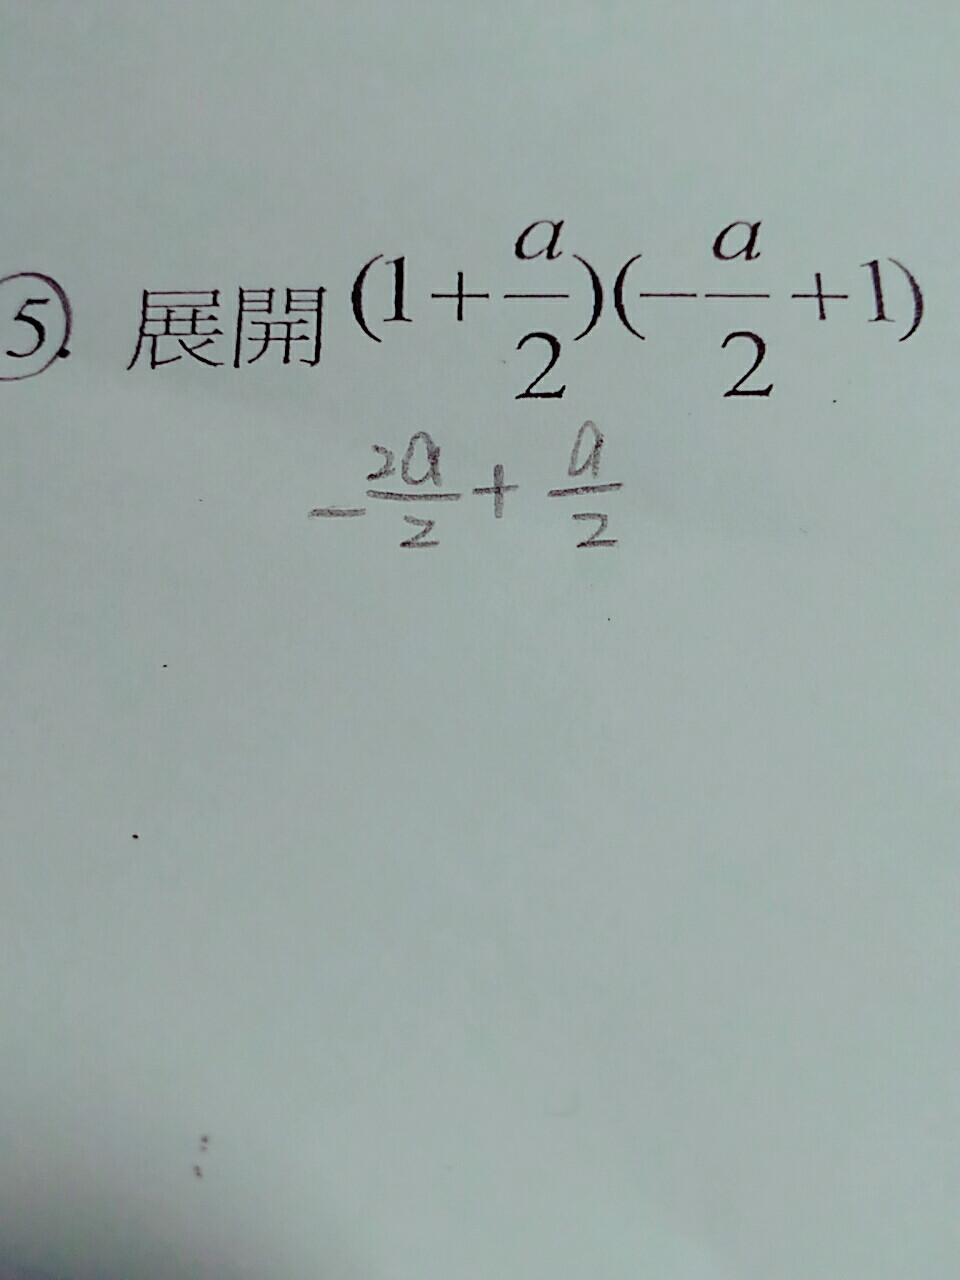 5. 展開 (1 + a/2)(-a/2 + 1)
-2a/2 + a/2